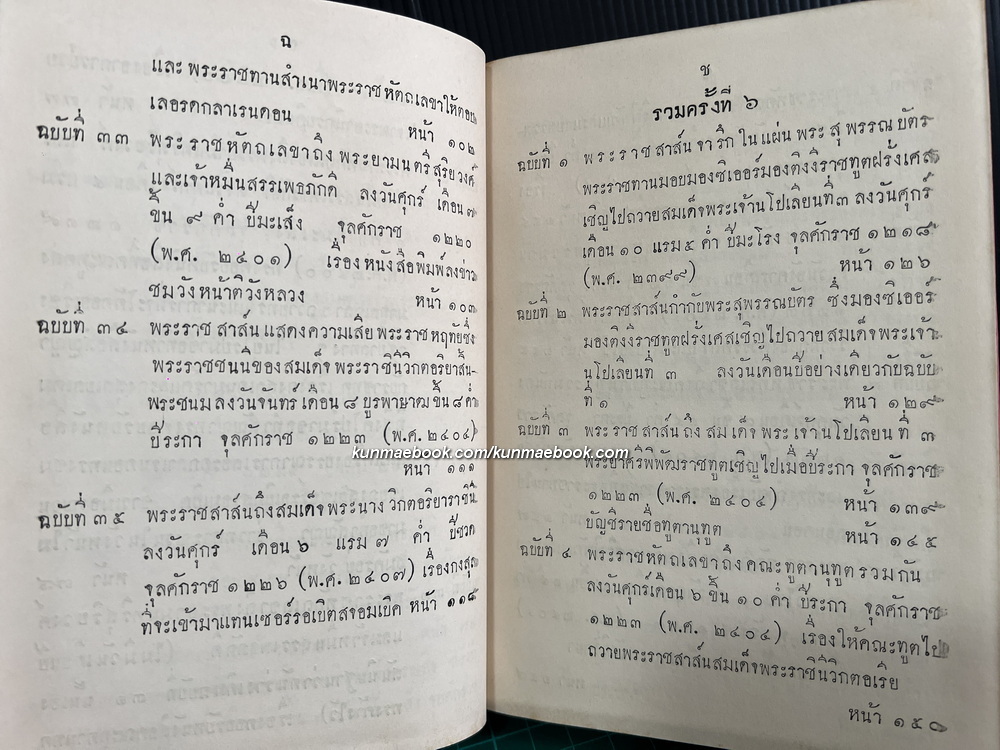 ฉ
และ พระราชทานสำเนาพระราชหัตถเลขาให้ตอบ
เลอรดกลาเรนดอน หน้า ๑๐๒
ฉบับที่ ๓๓ พระราชหัตถเลขาถึง พระยามนตรีสุริยวงศ์
และเจ้าหมื่นสรรเพธภักดี ลงวันศุกร์ เดือน ๗
ขึ้น ๙ ค่ำ ปีมะเส็ง จุลศักราช ๑๒๒๐
(พ.ศ. ๒๔๐๑) เรื่องหนังสือพิมพ์ลงข่าว
ชมวังหน้าติวังหลวง หน้า ๑๐๓
ฉบับที่ ๓๔ พระราชสาส์นแสดงความเสียพระราชหฤทัยซึ่ง
พระราชชนนีของสมเด็จพระราชินีวิกตอริยาสิ้น-
พระชนม ลงวันจันทร์ เดือน ๘ บูรพาษาฒ ขึ้น ๘ ค่ำ
ปีระกา จุลศักราช ๑๒๒๓ (พ.ศ. ๒๔๐๔)
หน้า ๑๑๑
ฉบับที่ ๓๕ พระราชสาส์นถึงสมเด็จพระนางวิกตอริยาราชินี
ลงวันศุกร์ เดือน ๖ แรม ๗ ค่ำ ปีชวด
จุลศักราช ๑๒๒๖ (พ.ศ. ๒๔๐๗) เรื่องกงสุล
ที่จะเข้ามาแทนเซอร์รอเบิตสจอมเบิค หน้า ๑๑๘
kunmaebook.com/kunmaebook.com
ช
รวมครั้งที่ ๖
ฉบับที่ ๑ พระราชสาส์น จารึกในแผ่นพระสุพรรณบัตร
พระราชทานมอบมองซิเออร์มองติงงีราชทูตฝรั่งเศส
เชิญไปถวายสมเด็จพระเจ้านโปเลียนที่ ๓ ลงวันศุกร์
เดือน ๑๐ แรม ๕ ค่ำ ปีมะโรง จุลศักราช ๑๒๑๘
(พ.ศ. ๒๓๙๙) หน้า ๑๒๖
ฉบับที่ ๒ พระราชสาส์นกำกับพระสุพรรณบัตร ซึ่งมองซิเออร์
มองติงงีราชทูตฝรั่งเศสเชิญไปถวายสมเด็จพระเจ้า
นโปเลียนที่ ๓ ลงวันเดือนปีอย่างเดียวกับฉบับ
ที่ ๑ หน้า ๑๒๙
ฉบับที่ ๓ พระราชสาส์นถึงสมเด็จพระเจ้านโปเลียนที่ ๓
พระยาศรีพิพัฒราชทูตเชิญไปเมื่อปีระกา จุลศักราช
๑๒๒๓ (พ.ศ. ๒๔๐๔) หน้า ๑๓๙
บัญชีรายชื่อทูตานุทูต หน้า ๑๔๕
ฉบับที่ ๔ พระราชหัตถเลขาถึงคณะทูตานุทูตรวมกัน
ลงวันศุกร์เดือน ๖ ขึ้น ๑๐ ค่ำ ปีระกา จุลศักราช
๑๒๒๓ (พ.ศ. ๒๔๐๔) เรื่องให้คณะทูตไป
ถวายพระราชสาส์นสมเด็จพระราชินีวิกตอเรีย
หน้า ๑๕๐